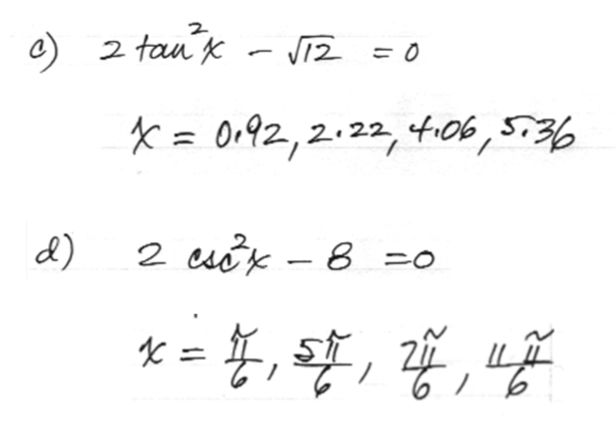 c) 2 tan²x - √12 = 0
x = 0.92, 2.22, 4.06, 5.36
d) 2 csc²x - 8 = 0
x = π/6, 5π/6, 7π/6, 11π/6